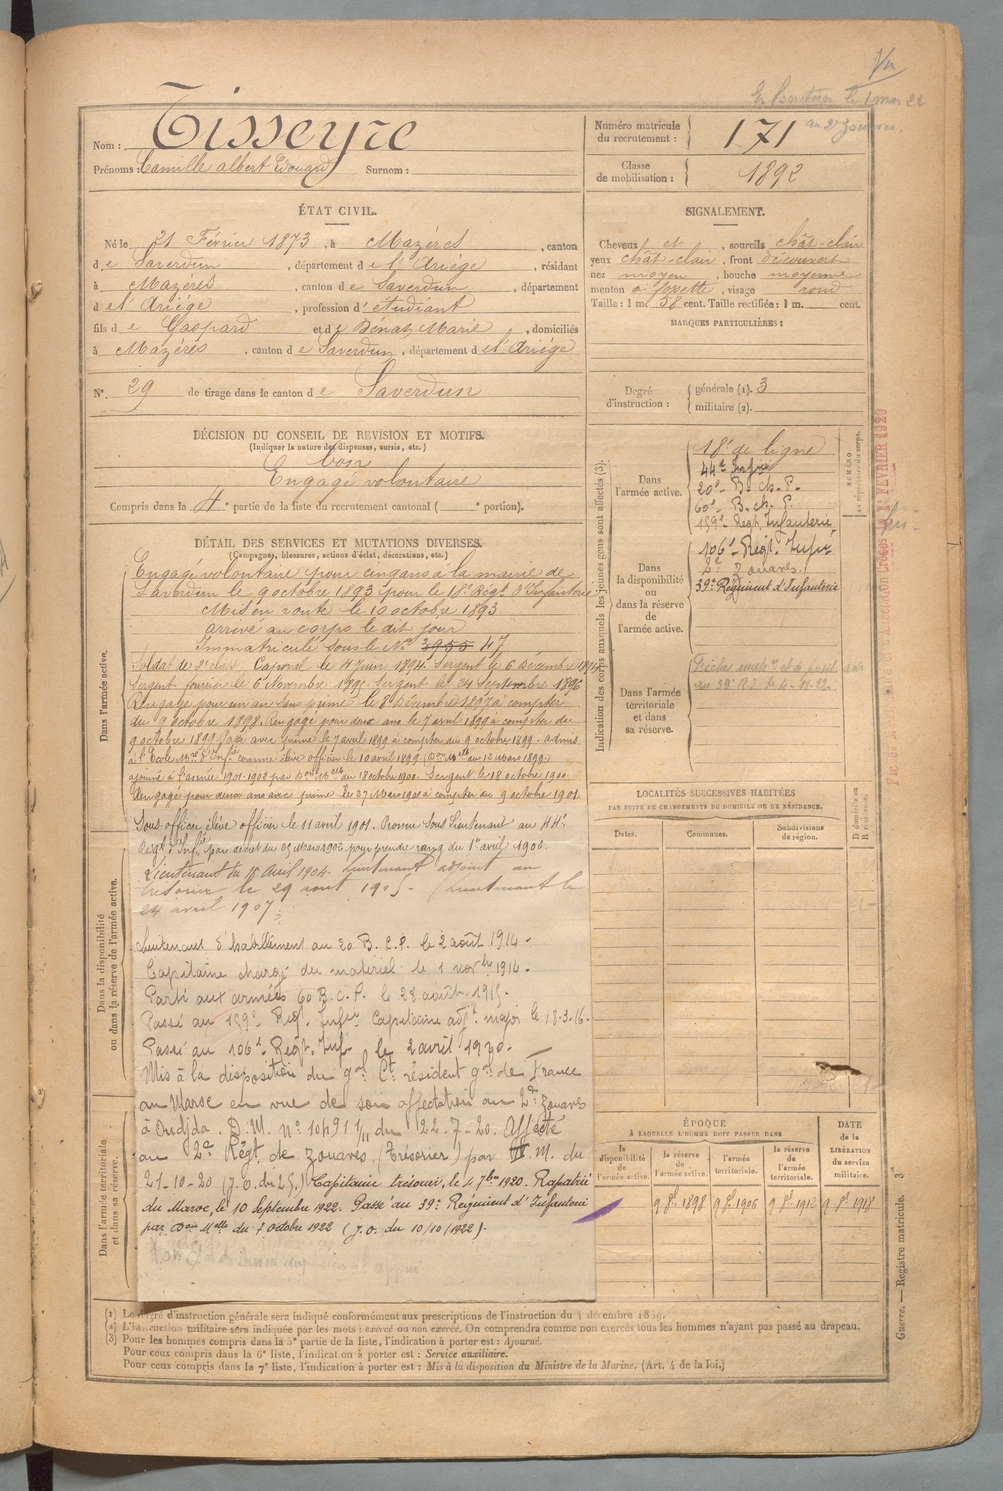 Vu
Nom : Tisseyre
Prénoms : Camille albert Edouard Surnom :
Numéro matricule du recrutement : 171
Classe de mobilisation : 1892
ÉTAT CIVIL.
Né le 21 Février 1873, à Mazérès, canton
de Saverdun, département de l'Ariège, résidant
à Mazérès, canton de Saverdun, département
de l'Ariège, profession d'étudiant
fils de Gaspard et de Bénat Marie, domiciliés
à Mazérès, canton de Saverdun, département de l'Ariège
N°. 29 de tirage dans le canton de Saverdun
SIGNALEMENT.
Cheveux et, sourcils chât-clair
yeux chât-clair, front découvert
nez moyen, bouche moyenne
menton à fossette, visage rond
Taille : 1 m. 58 cent. Taille rectifiée : 1 m. cent.
MARQUES PARTICULIÈRES :
Degré d'instruction : générale (1). 3
militaire (2).
DÉCISION DU CONSEIL DE REVISION ET MOTIFS.
(Indiquer la nature des dispenses, sursis, etc.)
bon
Engagé volontaire
Compris dans la 4e partie de la liste du recrutement cantonal ( e portion).
DÉTAIL DES SERVICES ET MUTATIONS DIVERSES.
(Campagnes, blessures, actions d'éclat, décorations, etc.)
Dans l'armée active.
Engagé volontaire pour cinq ans à la mairie de
Saverdun le 9 octobre 1893 pour le 18e Régt d'Infanterie
Mis en route le 10 octobre 1893
arrivé au corps le dit jour
Immatriculé sous le No 3955 47
Soldat de 2e classe, Caporal le 4 Juin 1894. Sergent le 6 Décembre 1894.
Sergent fourrier le 6 Novembre 1895. Sergent le 24 Septembre 1896
Rengagé pour un an sans prime le 8 Décembre 1897 à compter
du 9 octobre 1898. Rengagé pour deux ans le 7 avril 1899 à compter du
9 octobre 1899 avec prime le 7 avril 1899 à compter du 9 octobre 1899 - admis
à l'Ecole Mre d'Infie comme élève officier le 10 avril 1899 (Don Melle du 12 mars 1899)
ajourné à l'année 1901-1902 par Don Melle du 18 octobre 1900 Sergent le 18 octobre 1900
Rengagé pour deux ans avec prime le 27 Mars 1901 à compter du 9 octobre 1901.
Dans la disponibilité ou dans la réserve de l'armée active.
Sous-officier élève officier le 11 avril 1901. Promu Sous Lieutenant au 44e
Régt d'Infie par décret du 25 Mars 1902 pour prendre rang du 1er avril 1902.
Lieutenant du 15 Avril 1904. Lieutenant adjoint au
trésorier le 29 août 1905 - Lieutenant le
24 avril 1907
Lieutenant d'habillement au 20 B. C. P. le 2 août 1914 -
Capitaine chargé du matériel le 1 novbre 1914 -
Parti aux armées 60 B. C. P. le 28 août 1915 -
Passé au 159e Régt. Infie Capitaine adjt major le 18-3-16 -
Passé au 106e Régt. Inf. le 2 avril 1920 -
Mis à la disposition du gal Ct résident gal de France
au Maroc en vue de son affectation au 2e zouaves
à Oudjda. D. M. No 10491 1/11 du 22-7-20. Affecté
Dans l'armée territoriale et dans sa réserve.
au 2e Régt. de zouaves (Trésorier) par M. du
21-10-20 (J. O. du 25.) Capitaine trésorier, le 4 7bre 1920. Rapatrié
du Maroc, le 10 Septembre 1922. Passé au 39e Régiment d'Infanterie
par Don Melle du 7 octobre 1922 (J. O. du 10/10/1922).
Indication des corps auxquels les jeunes gens sont affectés (3).
NUMÉRO au répertoire du corps.
Dans l'armée active.
18e de ligne
44e Infie
20e B. Ch. P.
60e B. ch. P.
159e Régt. Infanterie
Dans la disponibilité ou dans la réserve de l'armée active.
106e Régt. Infie
2e Zouaves
39e Régiment d'Infanterie
Dans l'armée territoriale et dans sa réserve.
LOCALITÉS SUCCESSIVES HABITÉES
PAR SUITE DE CHANGEMENTS DE DOMICILE OU DE RÉSIDENCE.
Dates. Communes. Subdivisions de région. D domicile ou R résidence.
ÉPOQUE
À LAQUELLE L'HOMME DOIT PASSER DANS
DATE de la LIBÉRATION du service militaire.
la disponibilité de l'armée active. la réserve de l'armée active. l'armée territoriale. la réserve de l'armée territoriale.
9 8e 1898 9 8e 1906 9 8e 1912 9 8e 1918
(1) Le degré d'instruction générale sera indiqué conformément aux prescriptions de l'instruction du 4 décembre 1889.
(2) L'instruction militaire sera indiquée par les mots : exercé ou non exercé. On comprendra comme non exercés tous les hommes n'ayant pas passé au drapeau.
(3) Pour les hommes compris dans la 5e partie de la liste, l'indication à porter est : Ajourné.
Pour ceux compris dans la 6e liste, l'indication à porter est : Service auxiliaire.
Pour ceux compris dans la 7e liste, l'indication à porter est : Mis à la disposition du Ministre de la Marine. (Art. 4 de la loi.)
Guerre. — Registre matricule. 3